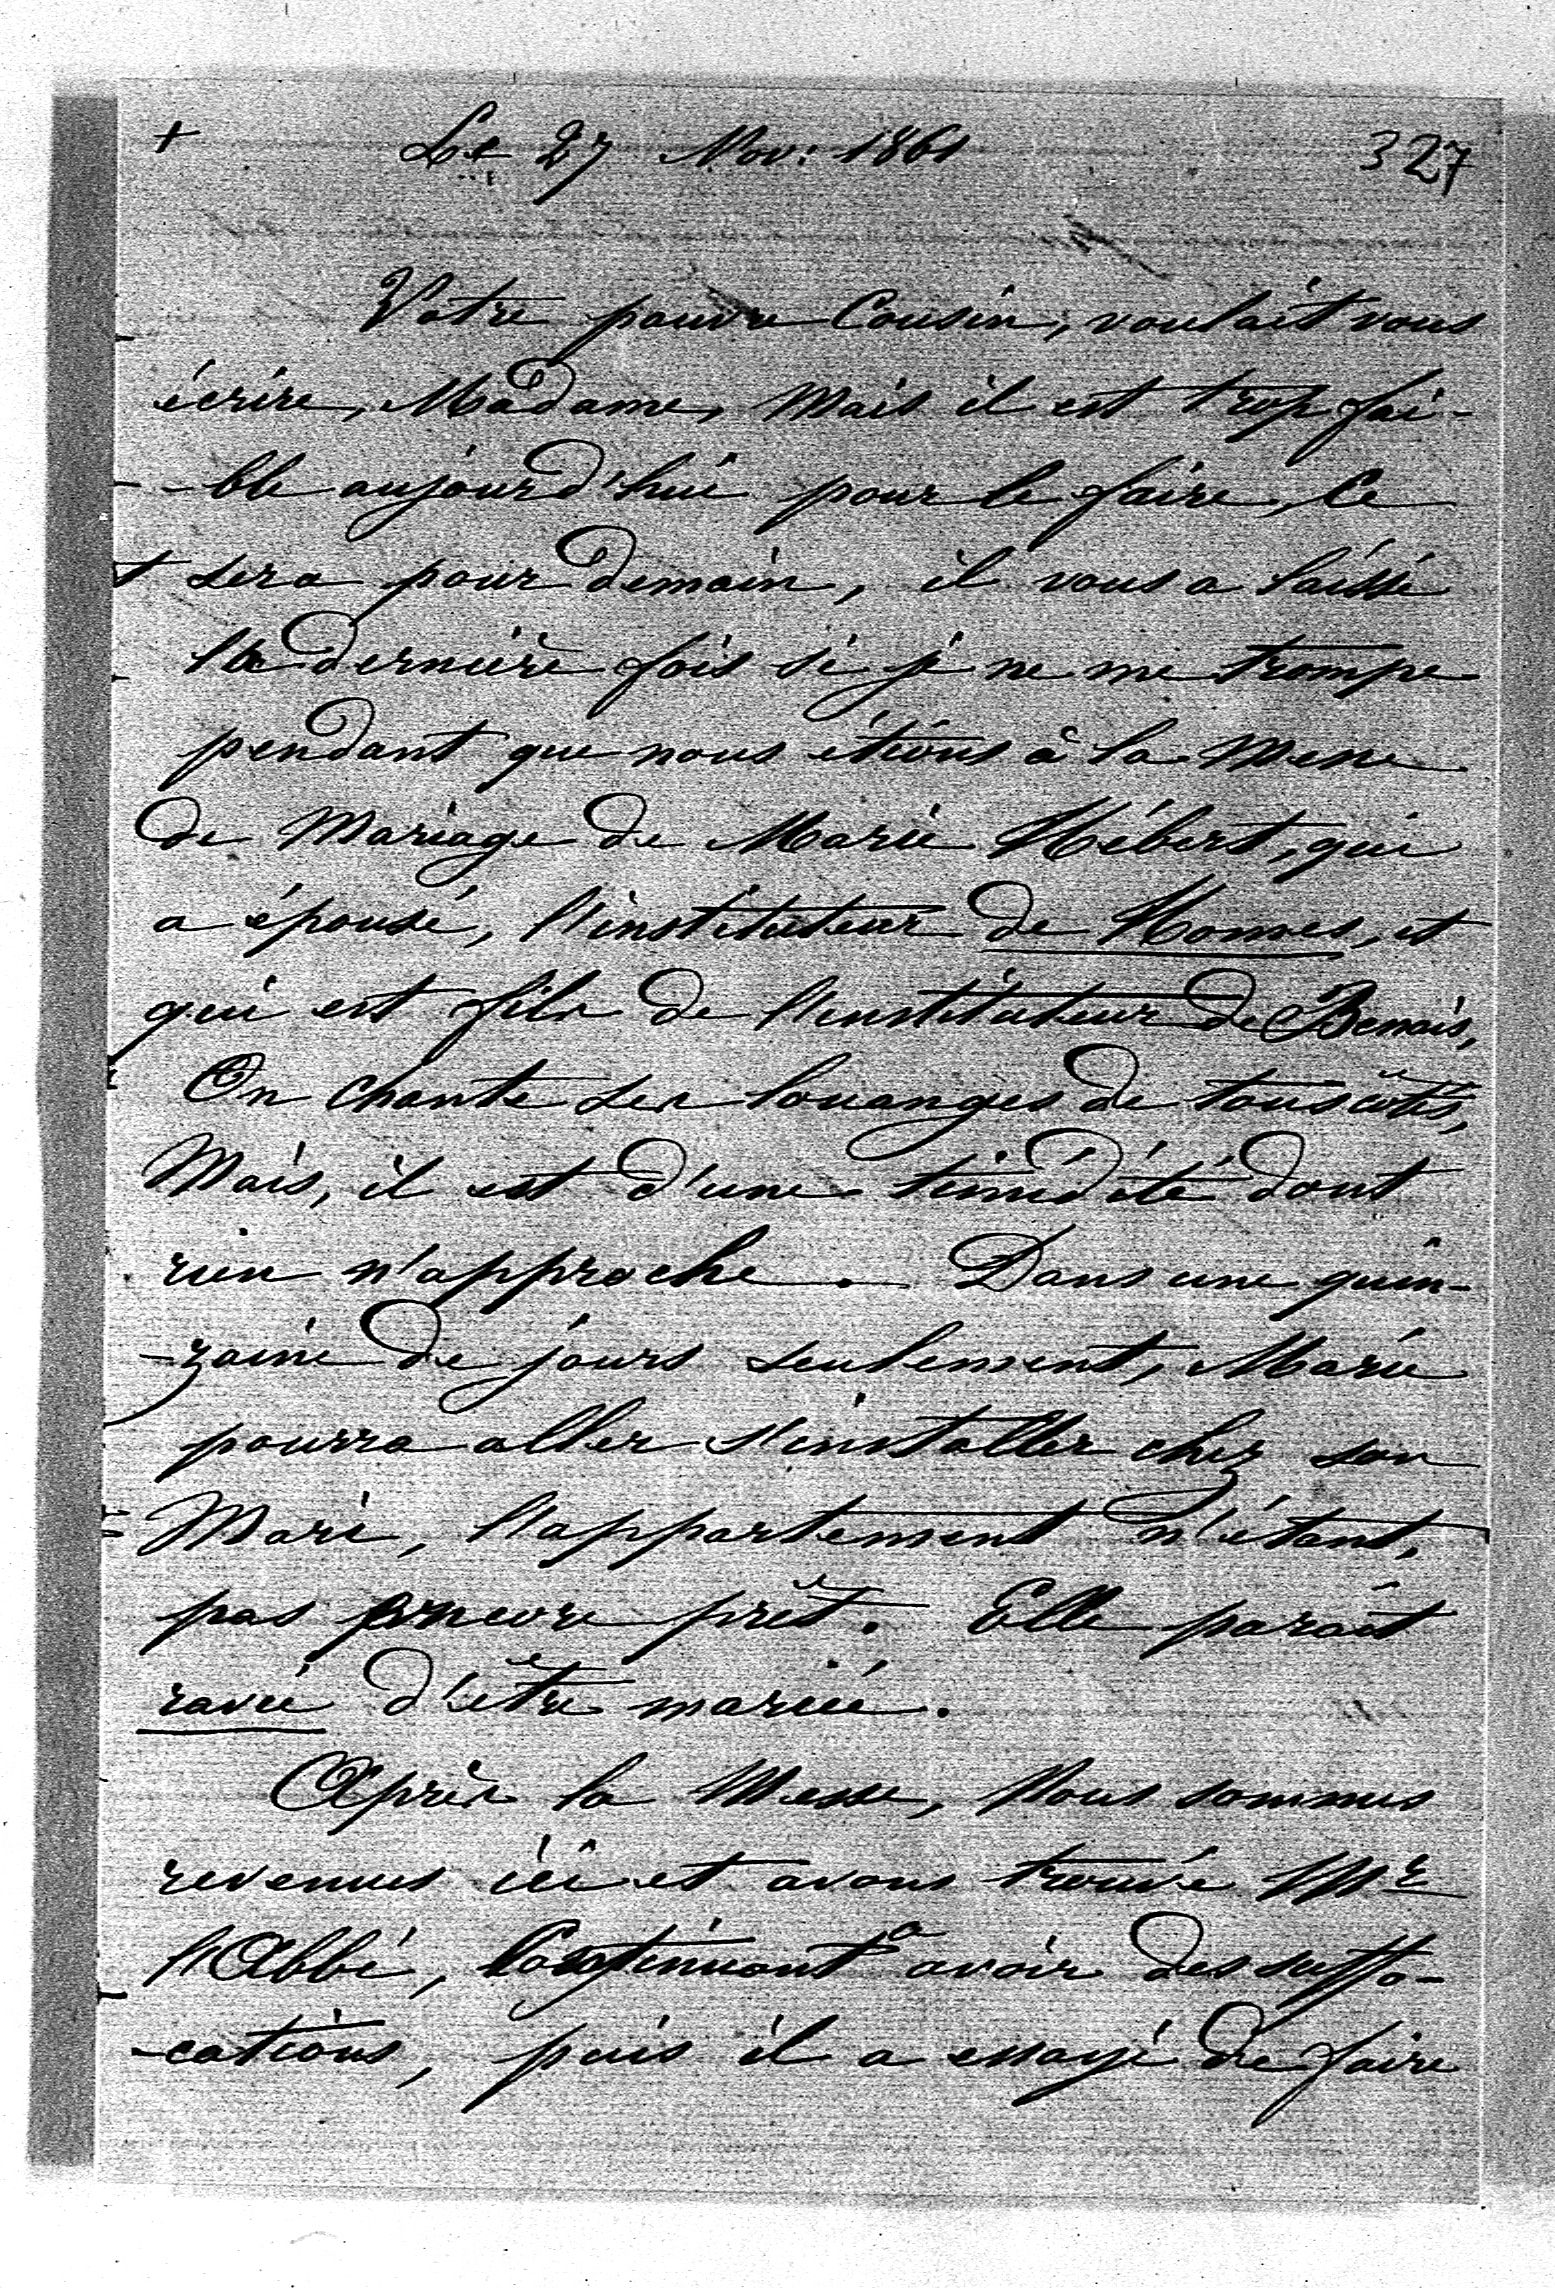 + Le 27 Nov: 1861 327
Votre pauvre Cousin, voulait vous
écrire, Madame, Mais il est trop fai-
-ble aujourd'hui pour le faire, Ce
sera pour demain, il vous a laissé
la dernière fois si je ne me trompe
pendant que nous étions à la Messe
de Mariage de Marie Hébert, qui
a épousé, l'instituteur de Hommes, et
qui est fils de l'instituteur de Benais,
On chante ses louanges de tous côtés,
Mais, il est d'une timidité dont
rien n'approche. Dans une quin-
-zaine de jours seulement, Marie
pourra aller s'installer chez son
Mari, l'appartement n'étant,
pas encore prêt. Elle parait
ravie d'être mariée.
Après la Messe, Nous sommes
revenues ici et avons trouvé Mr
l'Abbé, Continuant a avoir des suffo-
-cations, puis il a essayé de faire